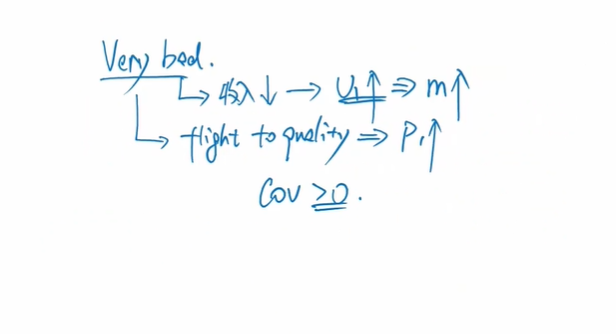 Very bad.
收入↓ → U₁↑ ⇒ m↑
flight to quality ⇒ P₁↑
Cov ≥0.